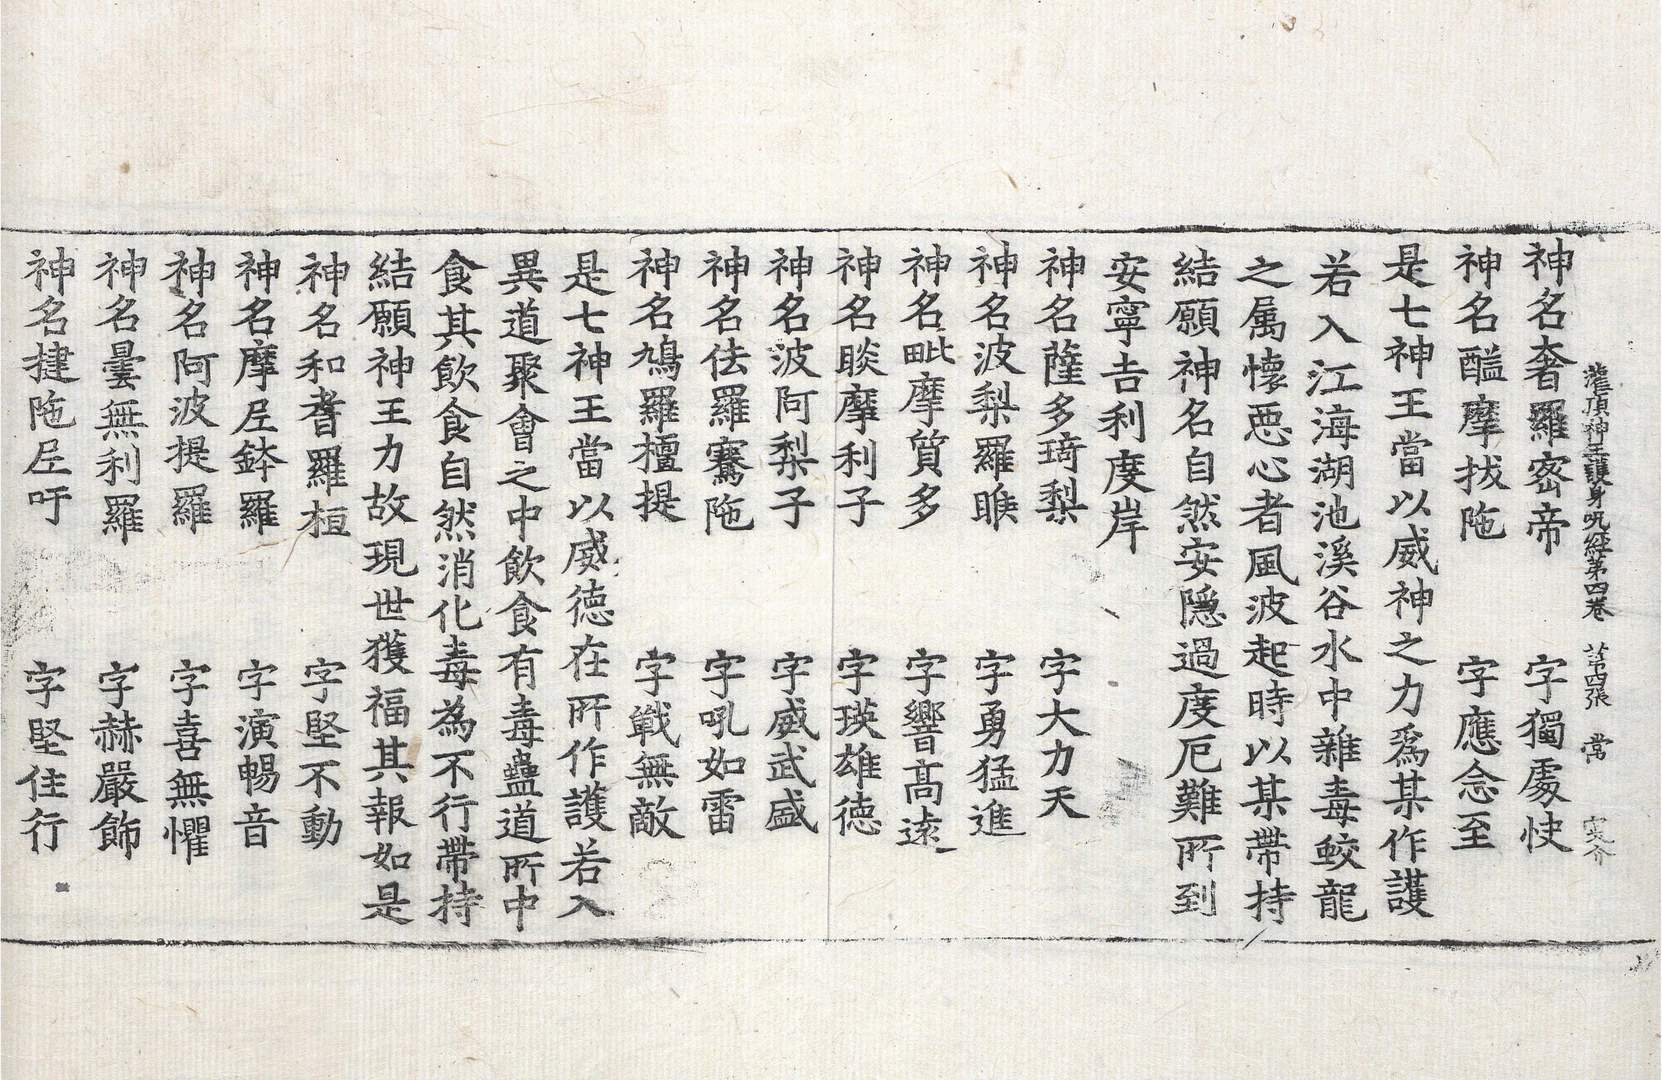 灌頂神王護身呪經第四卷 第四張 常
神名奢羅宻帝 字獨處快
神名醯摩拔陁 字應念至
是七神王當以威神之力爲某作護
若入江海湖池溪谷水中雜毒鮫龍
之属懷惡心者風波起時以某帶持
結願神名自然安隱過度厄難所到
安寧吉利度岸
神名薩多琦梨 字大力天
神名波梨羅睺 字勇猛進
神名毗摩質多 字響高遠
神名睒摩利子 字瑛雄德
神名波阿梨子 字威武盛
神名佉羅騫陁 字吼如雷
神名鳩羅檀提 字戰無敵
是七神王當以威德在所作護若入
異道聚會之中飲食有毒蠱道所中
食其飲食自然消化毒為不行帶持
結願神王力故現世獲福其報如是
神名和耆羅桓 字堅不動
神名摩尼鉢羅 字演暢音
神名阿波提羅 字喜無懼
神名曇無利羅 字赫嚴飾
神名揵陁尼吁 字堅住行